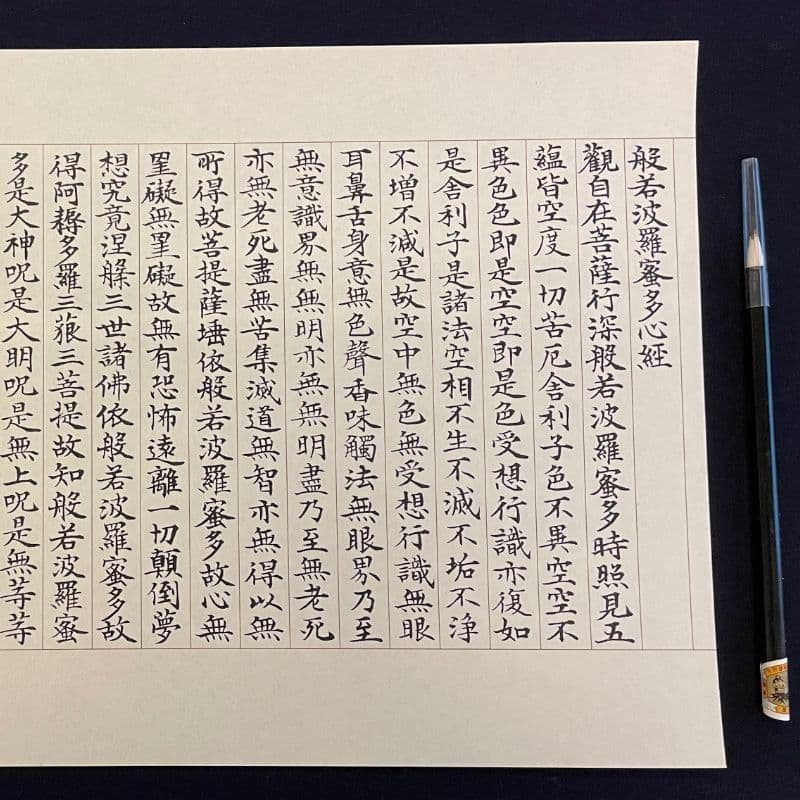 般若波羅蜜多心經
觀自在菩薩行深般若波羅蜜多時照見五
蘊皆空度一切苦厄舍利子色不異空空不
異色色即是空空即是色受想行識亦復如
是舍利子是諸法空相不生不滅不垢不淨
不增不減是故空中無色無受想行識無眼
耳鼻舌身意無色聲香味觸法無眼界乃至
無意識界無無明亦無無明盡乃至無老死
亦無老死盡無苦集滅道無智亦無得以無
所得故菩提薩埵依般若波羅蜜多故心無
罣礙無罣礙故無有恐怖遠離一切顛倒夢
想究竟涅槃三世諸佛依般若波羅蜜多故
得阿耨多羅三藐三菩提故知般若波羅蜜
多是大神呪是大明呪是無上呪是無等等